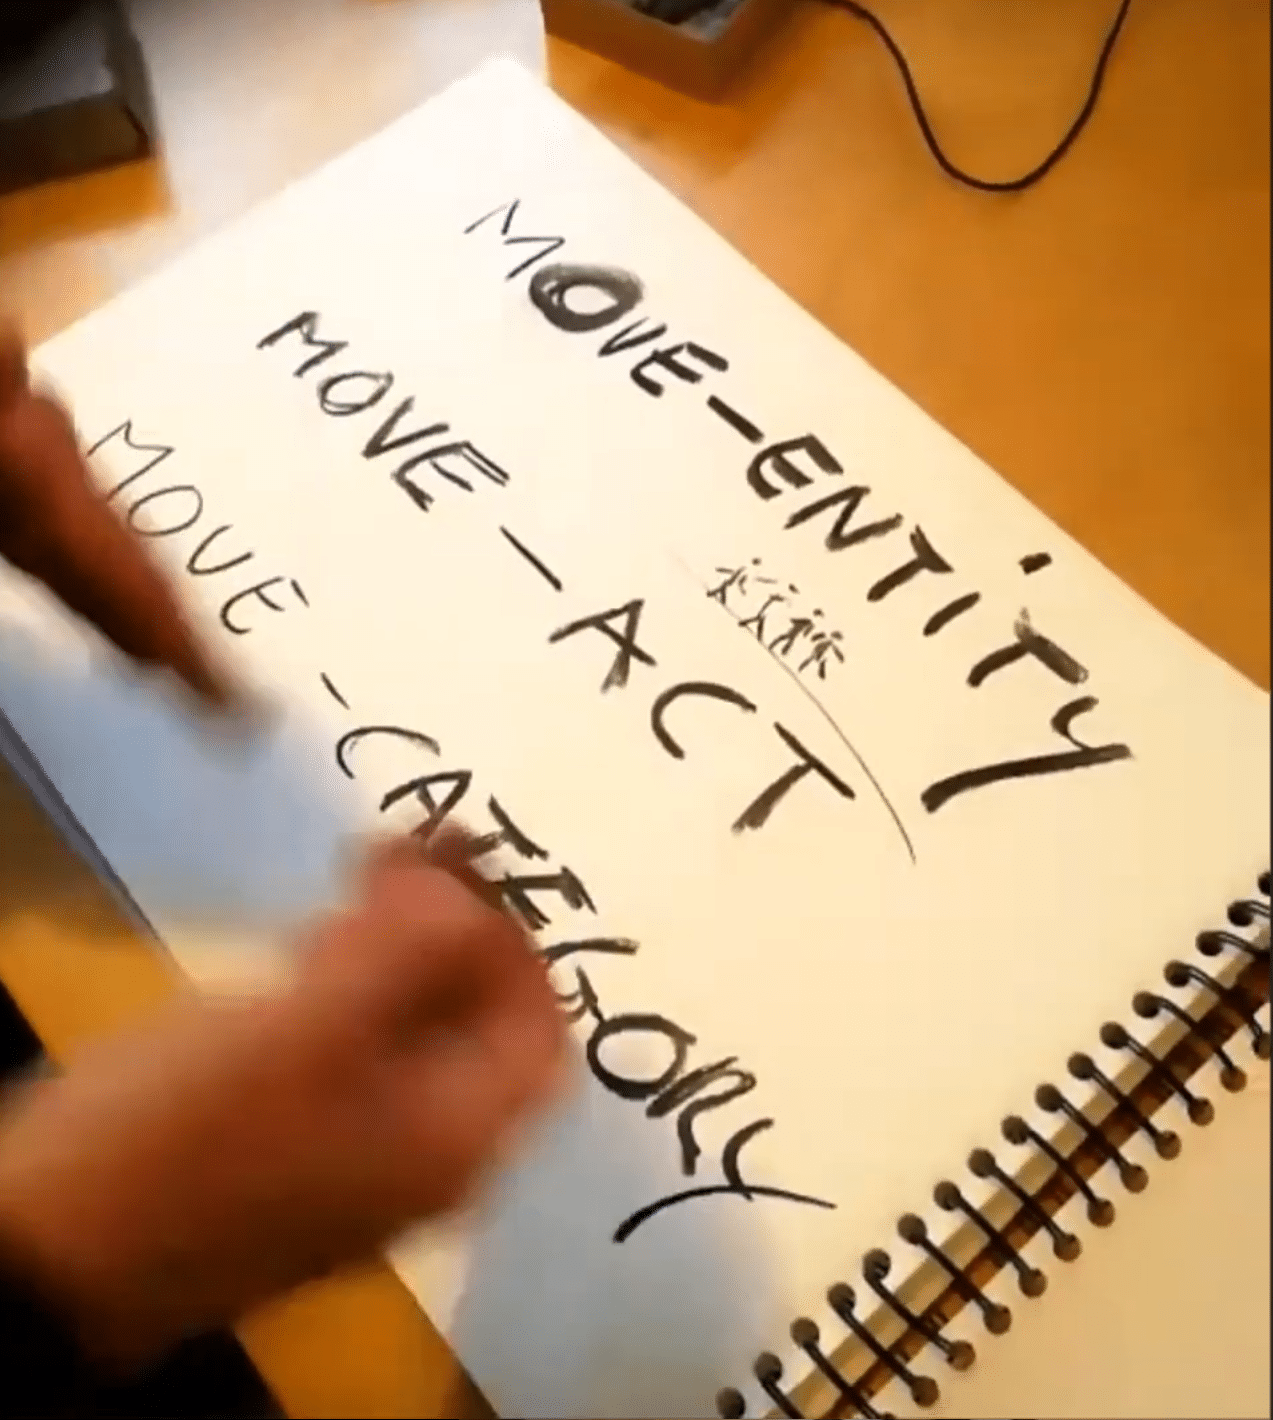 MOVE-ENTiTy
MOVE-ACT
MOVE-CATEGORY